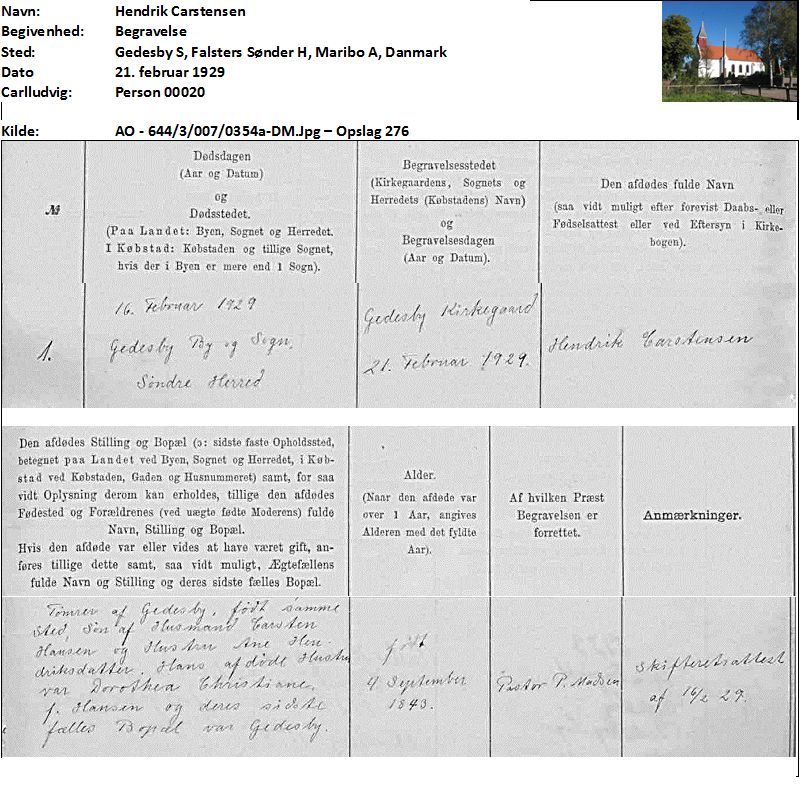 Navn: Hendrik Carstensen
Begivenhed: Begravelse
Sted: Gedesby S, Falsters Sønder H, Maribo A, Danmark
Dato 21. februar 1929
Carlludvig: Person 00020
Kilde: AO - 644/3/007/0354a-DM.Jpg – Opslag 276
№
Dødsdagen
(Aar og Datum)
og
Dødsstedet.
(Paa Landet: Byen, Sognet og Herredet.
I Købstad: Købstaden og tillige Sognet,
hvis der i Byen er mere end 1 Sogn).
Begravelsesstedet
(Kirkegaardens, Sognets og
Herredets (Købstadens) Navn)
og
Begravelsesdagen
(Aar og Datum).
Den afdødes fulde Navn
(saa vidt muligt efter forevist Daabs- eller
Fødselsattest eller ved Eftersyn i Kirke-
bogen).
1.
16. Februar 1929
Gedesby By og Sogn,
Søndre Herred
Gedesby Kirkegaard
21. Februar 1929.
Hendrik Carstensen
Den afdødes Stilling og Bopæl (ɔ: sidste faste Opholdssted,
betegnet paa Landet ved Byen, Sognet og Herredet, i Køb-
stad ved Købstaden, Gaden og Husnummeret) samt, for saa
vidt Oplysning derom kan erholdes, tillige den afdødes
Fødested og Forældrenes (ved uægte fødte Moderens) fulde
Navn, Stilling og Bopæl.
Hvis den afdøde var eller vides at have været gift, an-
føres tillige dette samt, saa vidt muligt, Ægtefællens
fulde Navn og Stilling og deres sidste fælles Bopæl.
Alder.
(Naar den afdøde var
over 1 Aar, angives
Alderen med det fyldte
Aar).
Af hvilken Præst
Begravelsen er
forrettet.
Anmærkninger.
Tømrer af Gedesby, født samme
Sted, Søn af Husmand Carsten
Hansen og Hustru Ane Hen-
driksdatter. Hans afdøde Hustru
var Dorothea Christiane,
f. Hansen og deres sidste
fælles Bopæl var Gedesby.
født
4 September
1843.
Pastor P. Madsen
Skifteretsattest
af 16/2 29.